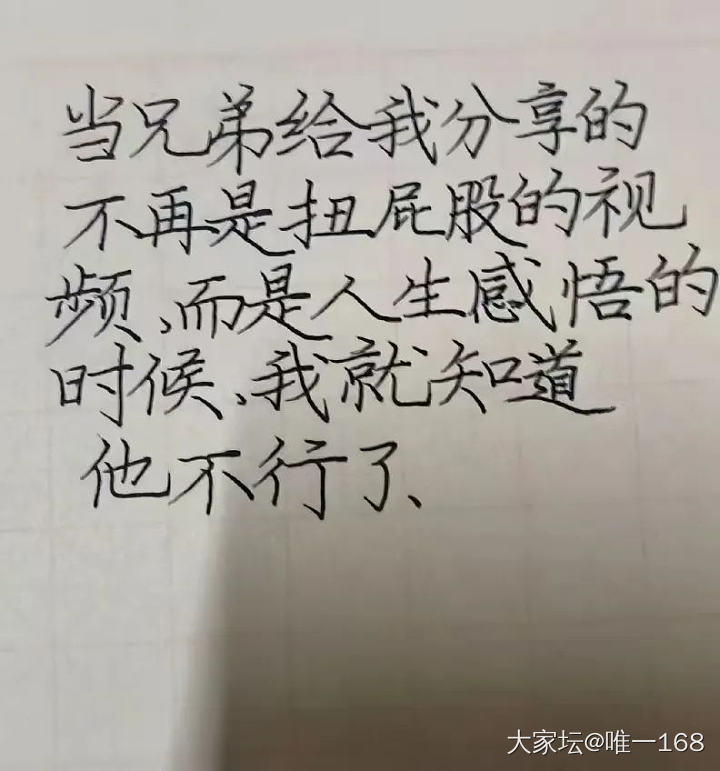 当兄弟给我分享的
不再是扭屁股的视
频、而是人生感悟的
时候、我就知道
他不行了、
大家坛@唯一168